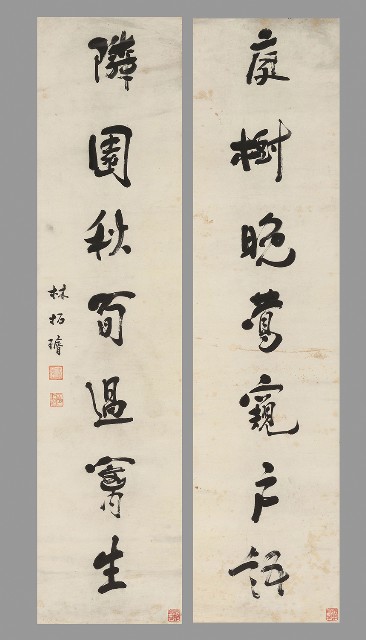 庭樹晚鶯窺戶語
隣園秋筍過窗生
林